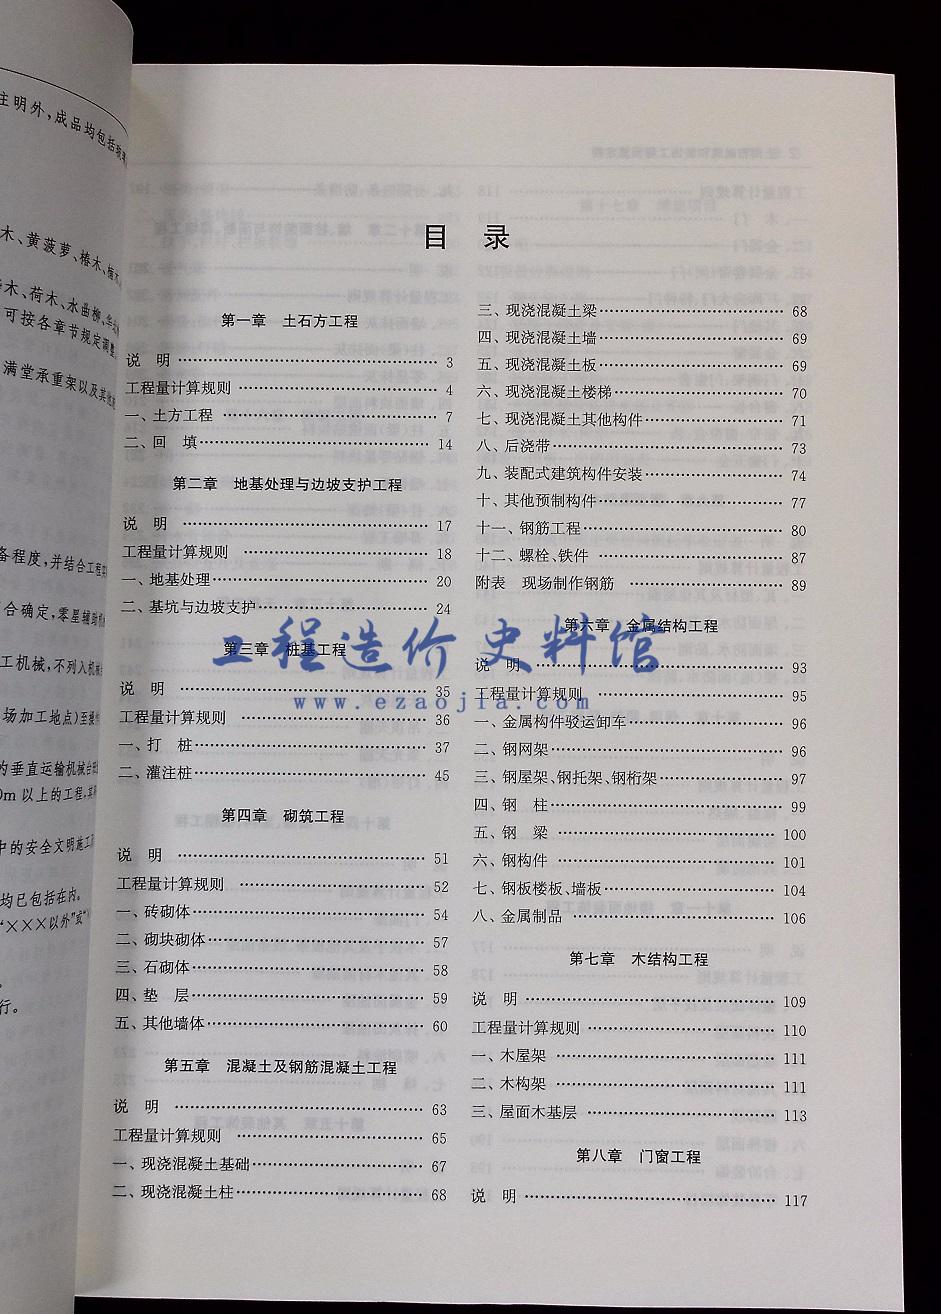 主明外,成品均包括
木、黄菠萝、椿木、楠木
木、荷木、水曲柳、华
可按各章节规定调整
满堂承重架以及其他
备程度,并结合工程
合确定,零星辅助
工机械,不列入机械
场加工地点)至操作
的垂直运输机械台班
0m以上的工程,其
中的安全文明施工
均已包括在内。
“×××以外”或“
行。
目 录
第一章 土石方工程
说 明 3
工程量计算规则 4
一、土方工程 7
二、回 填 14
第二章 地基处理与边坡支护工程
说 明 17
工程量计算规则 18
一、地基处理 20
二、基坑与边坡支护 24
第三章 桩基工程
说 明 35
工程量计算规则 36
一、打 桩 37
二、灌注桩 45
第四章 砌筑工程
说 明 51
工程量计算规则 52
一、砖砌体 54
二、砌块砌体 57
三、石砌体 58
四、垫 层 59
五、其他墙体 60
第五章 混凝土及钢筋混凝土工程
说 明 63
工程量计算规则 65
一、现浇混凝土基础 67
二、现浇混凝土柱 68
三、现浇混凝土梁 68
四、现浇混凝土墙 69
五、现浇混凝土板 69
六、现浇混凝土楼梯 70
七、现浇混凝土其他构件 71
八、后浇带 73
九、装配式建筑构件安装 74
十、其他预制构件 77
十一、钢筋工程 80
十二、螺栓、铁件 87
附表 现场制作钢筋 89
第六章 金属结构工程
说 明 93
工程量计算规则 95
一、金属构件驳运卸车 96
二、钢网架 96
三、钢屋架、钢托架、钢桁架 97
四、钢 柱 99
五、钢 梁 100
六、钢构件 101
七、钢板楼板、墙板 104
八、金属制品 106
第七章 木结构工程
说 明 109
工程量计算规则 110
一、木屋架 111
二、木构架 111
三、屋面木基层 113
第八章 门窗工程
说 明 117
工程造价史料馆
www.ezaojia.com